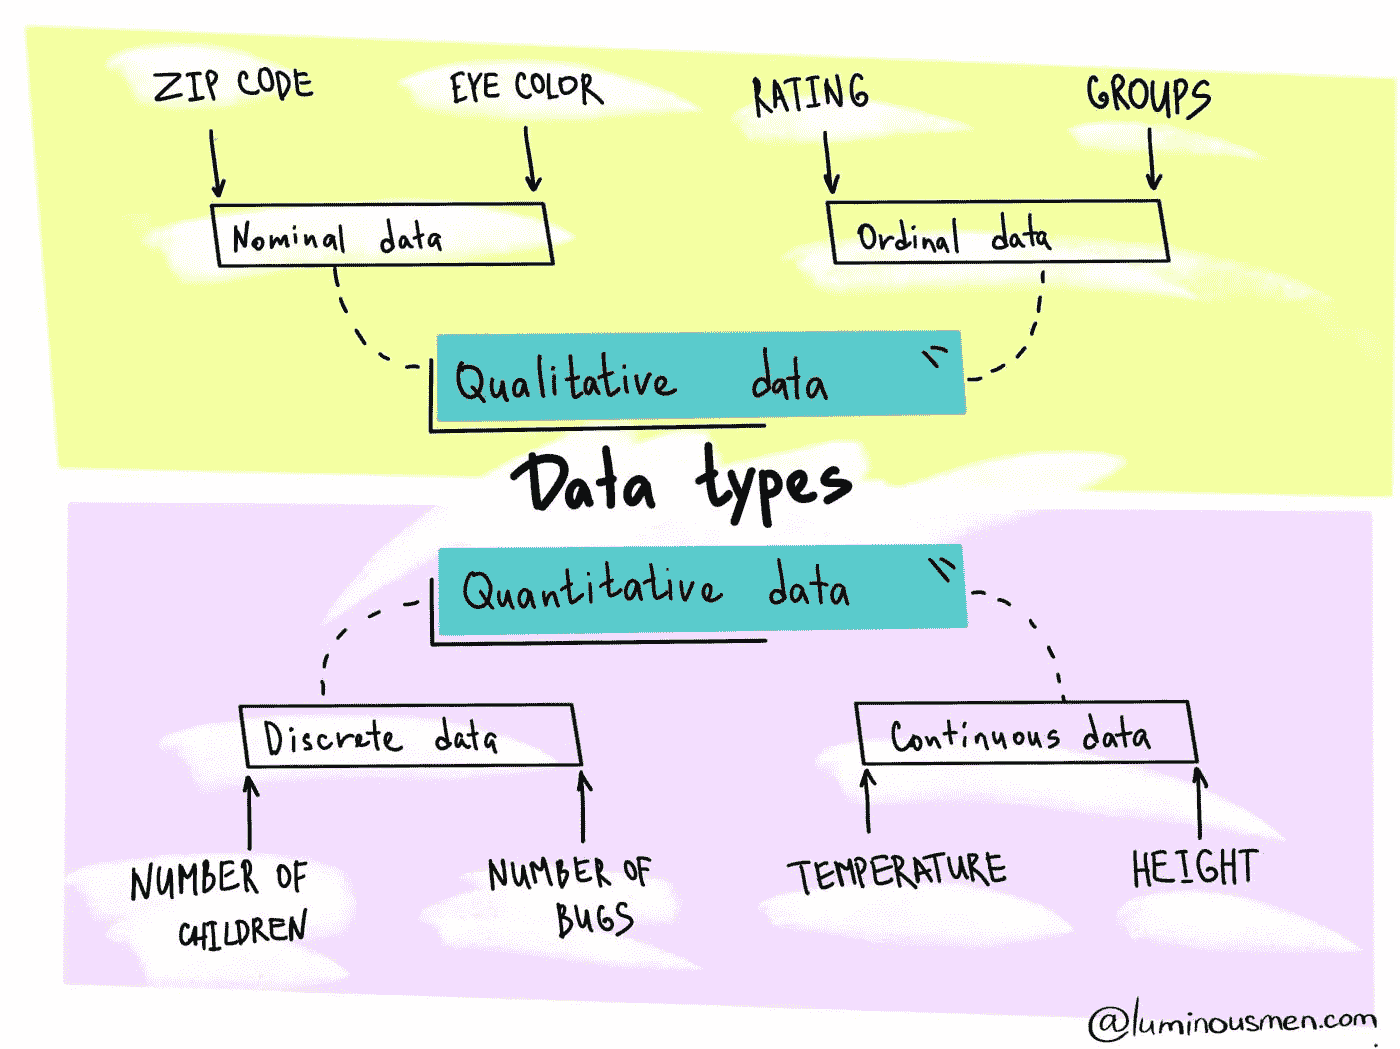 ZIP CODE
EYE COLOR
RATING
GROUPS
Nominal data
Ordinal data
Qualitative data
Data types
Quantitative data
Discrete data
Continuous data
NUMBER OF
CHILDREN
NUMBER OF
BUGS
TEMPERATURE
HEIGHT
@luminousmen.com